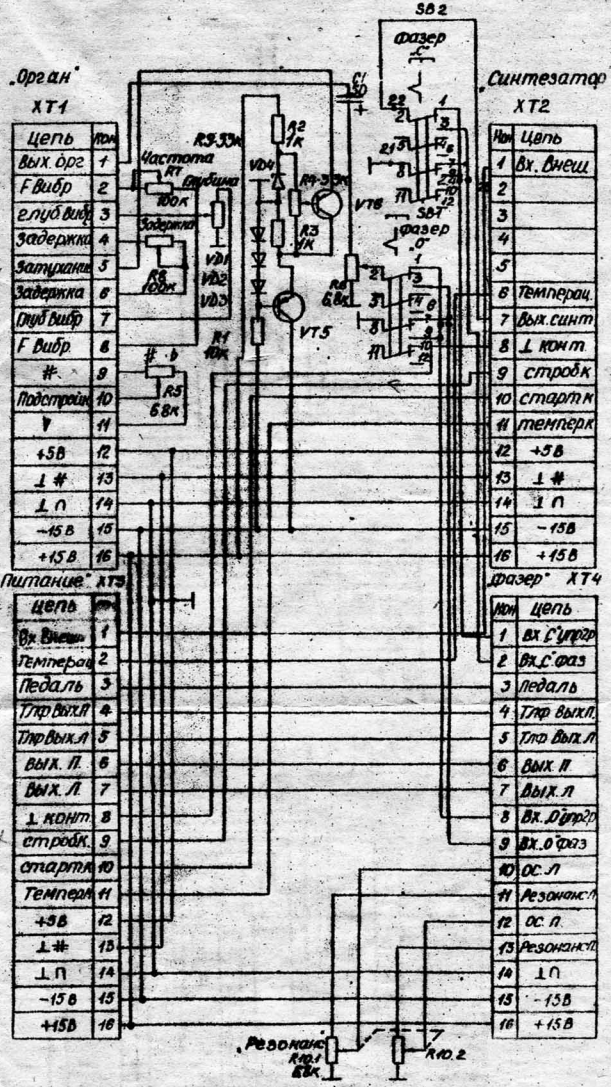 SB2
„Фазер
„С"
„Орган"
XT1
Цепь
Кон
Вых. орг 1
F Вибр 2
Глуб Вибр 3
Задержка 4
Затухание 5
Задержка 6
Глуб Вибр 7
F Вибр. 8
# 9
Подстройк 10
11
+5В 12
⊥ # 13
⊥ П 14
-15В 15
+15В 16
Частота
R7
100к
Глубина
Задержка
R8
100к
# b
R5
6.8к
VD4
VD1
VD2
VD3
R1
10к
R2
1к
R3
1к
VT6
VT5
C1
50
+
R6
6,8к
22
1
3
21
8
11
10
12
SB1
Фазер
„О"
2
1
3
5
4
8
7
11
10
12
„Синтезатор
XT2
Кон Цепь
1 Вх. Внеш.
2
3
4
5
6 Температ.
7 Вых. синт
8 ⊥ конт
9 стробк
10 стартк
11 темперк
12 +5В
13 ⊥ #
14 ⊥ П
15 -15В
16 +15В
Питание" XT3
Цепь
Вх. Внеш 1
Температ 2
Педаль 3
Тлф Вых.П 4
Тлф Вых.Л 5
Вых. П. 6
Вых. Л 7
⊥ конт. 8
стробк. 9
стартк 10
Темперк 11
+5В 12
⊥ # 13
⊥ П 14
-15В 15
+15В 16
„Фазер" XT4
Кон Цепь
1 Вх. „С" упргр
2 Вх. „С" фаз
3 Педаль
4 Тлф Вых.П.
5 Тлф Вых.Л
6 Вых. П
7 Вых. Л
8 Вх. „О" упргр
9 Вх. „О" фаз
10 ОС. Л
11 Резонанс Л
12 ОС. П.
13 Резонанс П
14 ⊥ П
15 -15В
16 +15В
„Резонанс"
R10.1
6.8к
R10.2